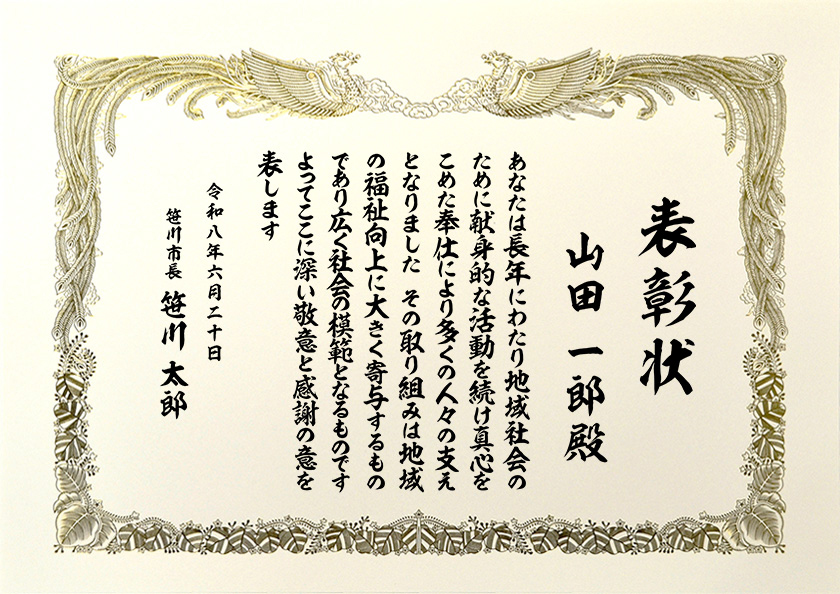 表彰状
山田 一郎 殿
あなたは長年にわたり地域社会の
ために献身的な活動を続け真心を
こめた奉仕により多くの人々の支え
となりました その取り組みは地域
の福祉向上に大きく寄与するもの
であり広く社会の模範となるものです
よってここに深い敬意と感謝の意を
表します
令和八年六月二十日
笹川市長 笹川 太郎